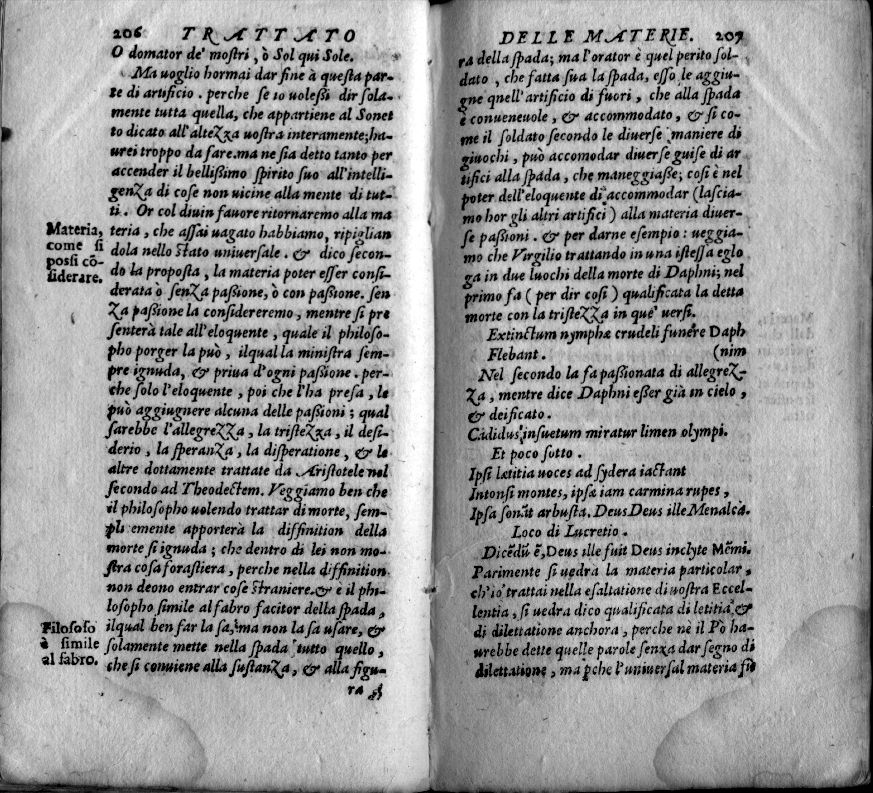 206 TRATTATO
O domator de' mostri, ò Sol qui Sole.
Ma uoglio hormai dar fine à questa par-
te di artificio. perche se io uolessi dir sola-
mente tutta quella, che appartiene al Sonet
to dicato all'altezza uostra interamente; ha-
urei troppo da fare. ma ne sia detto tanto per
accender il bellissimo spirito suo all'intelli-
genza di cose non uicine alla mente di tut-
ti. Or col diuin fauore ritornaremo alla ma
teria, che assai uagato habbiamo, ripiglian
dola nello stato uniuersale. & dico secon-
do la proposta, la materia poter esser consi-
derata ò senza passione, ò con passione. sen
za passione la considereremo, mentre si pre
senterà tale all'eloquente, quale il philoso-
pho porger la può, ilqual la ministra sem-
pre ignuda, & priua d'ogni passione. per-
che solo l'eloquente, poi che l'ha presa, le
può aggiugnere alcuna delle passioni; qual
sarebbe l'allegrezza, la tristezza, il desi-
derio, la speranza, la disperatione, & le
altre dottamente trattate da Aristotele nel
secondo ad Theodectem. Veggiamo ben che
il philosopho uolendo trattar di morte, sem-
pli emente apporterà la diffinition della
morte si ignuda; che dentro di lei non mo-
stra cosa forastiera, perche nella diffinition
non deono entrar cose straniere. & è il phi-
losopho simile al fabro facitor della spada,
ilqual ben far la sa, ma non la sa usare, &
solamente mette nella spada tutto quello,
che si conuiene alla sustanza, & alla figu-
ra
Materia,
come si
possi cō-
siderare.
Filosofo
è simile
al fabro.
DELLE MATERIE. 207
ra della spada; ma l'orator è quel perito sol-
dato, che fatta sua la spada, esso le aggiu-
gne quell'artificio di fuori, che alla spada
è conueneuole, & accommodato, & si co-
me il soldato secondo le diuerse maniere di
giuochi, può accomodar diuerse guise di ar
tifici alla spada, che maneggiasse; cosi è nel
poter dell'eloquente di accommodar (lascia-
mo hor gli altri artifici) alla materia diuer-
se passioni. & per darne esempio: ueggia-
mo che Virgilio trattando in una istessa eglo
ga in due luochi della morte di Daphni; nel
primo fa (per dir cosi) qualificata la detta
morte con la tristezza in que' uersi.
Extinctum nymphæ crudeli funere Daph
Flebant. (nim
Nel secondo la fa passionata di allegrez-
za, mentre dice Daphni esser già in cielo,
& deificato.
Cādidus insuetum miratur limen olympi.
Et poco sotto.
Ipsi lætitia uoces ad sydera iactant
Intonsi montes, ipsæ iam carmina rupes,
Ipsa sonāt arbusta. Deus Deus ille Menalca.
Loco di Lucretio.
Dicēdū ē, Deus ille fuit Deus inclyte Mēmi.
Parimente si uedra la materia particolar,
ch'io trattai nella esaltatione di uostra Eccel-
lentia, si uedra dico qualificata di letitia, &
di dilettatione anchora, perche nè il Pò ha-
urebbe dette quelle parole senza dar segno di
dilettatione, ma pche l'uniuersal materia fù